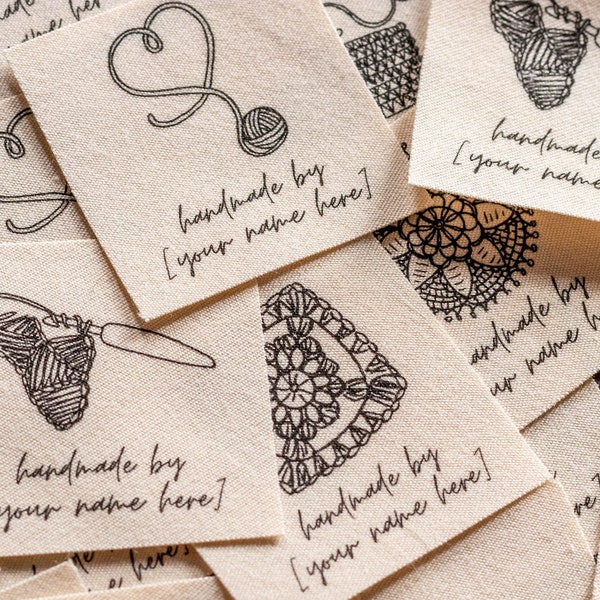 handmade by
[your name here]
handmade
[your name
handmade by
your name here]
andmade by
our name here]
handmade by
[your name here]